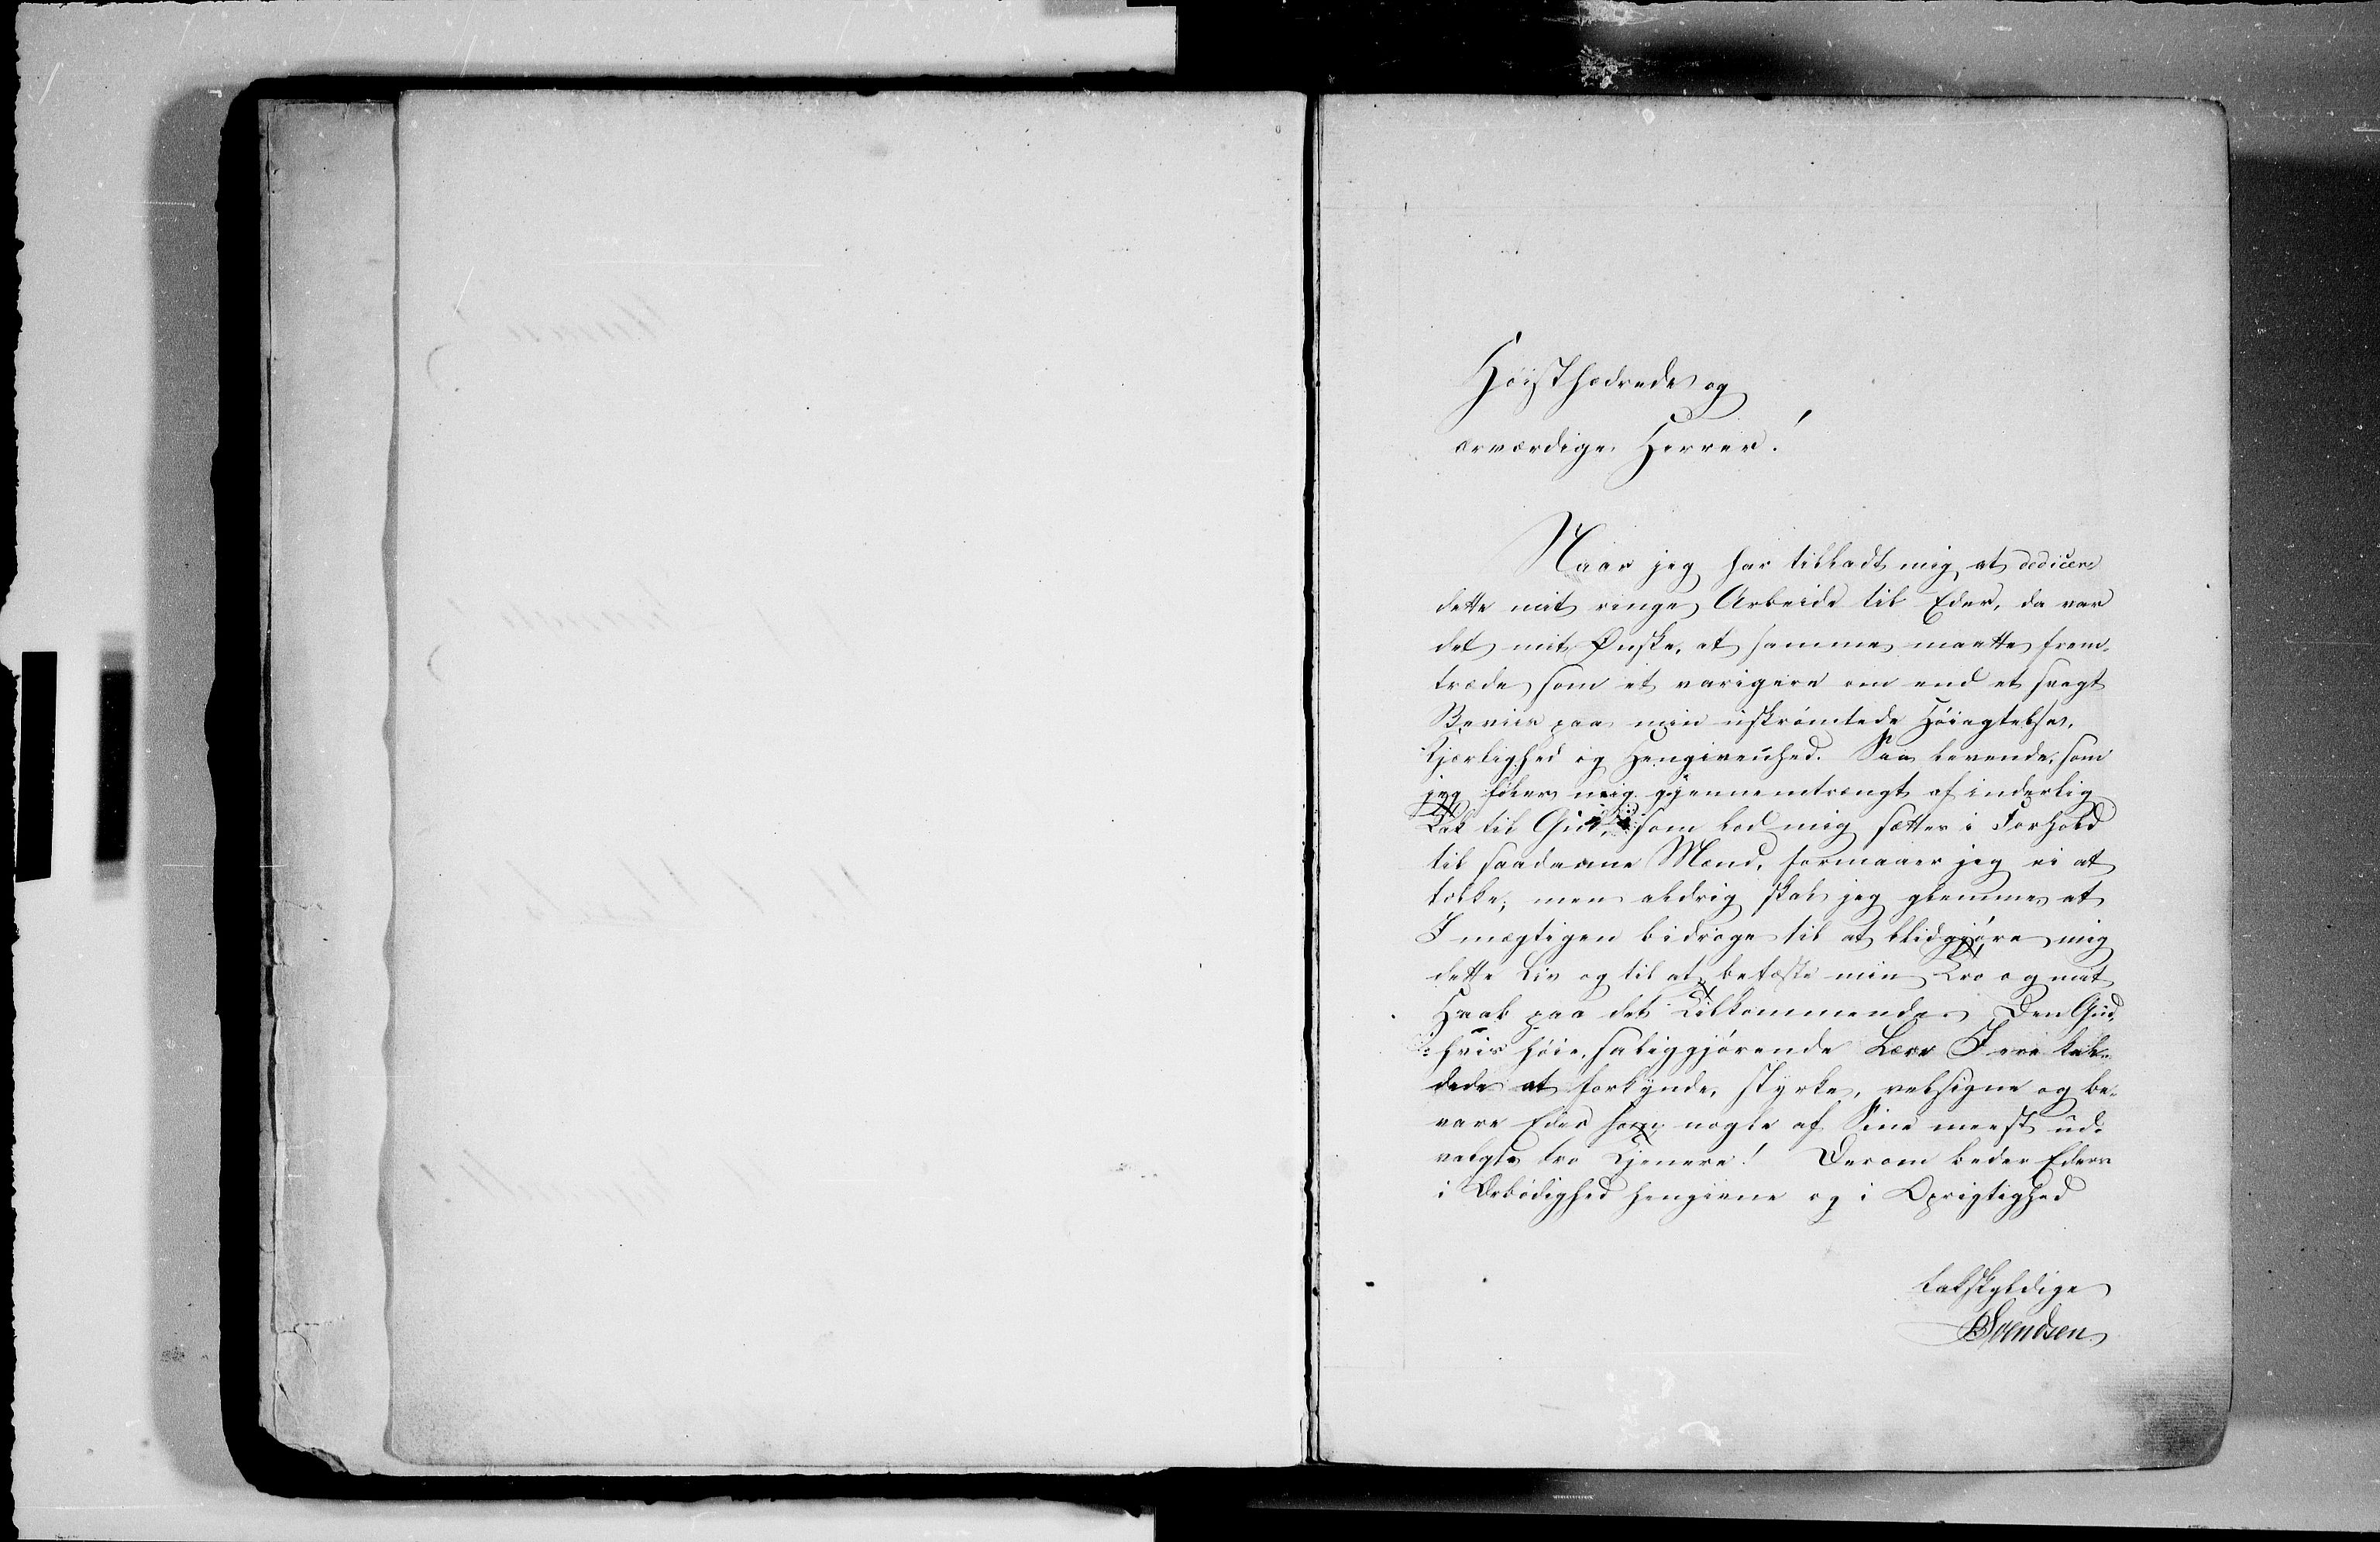 Høisthædrede og
ærværdige Herrer!
Naar jeg har tilladt mig at dedicere
dette mit ringe Arbeide til Eder, da var
det mit Ønske, at samme maatte frem-
træde som et varigere om end et svagt
Beviis paa min uskrømtede Høiagtelse,
Kjærlighed og Hengivenhed. Saa levende, som
jeg føler mig gjennemtrængt af inderlig
Tak til Gud, som lod mig sættes i Forhold
til saadanne Mænd, formaaer jeg ei at
tolke; men aldrig skal jeg glemme, at
I mægtigen bidroge til at blidgjøre mig
dette Liv og til at befæste min Tro og mit
Haab paa det Tilkommende. Den Gud,
hvis høie, saliggjørende Lære I ere kal-
dede at forkynde, styrke, velsigne og be-
vare Eder som nogle af Sine meest ud-
valgte tro Tjenere! Derom beder Eders
i Ærbødighed hengivne og i Oprigtighed
takskyldige
BSvendsen